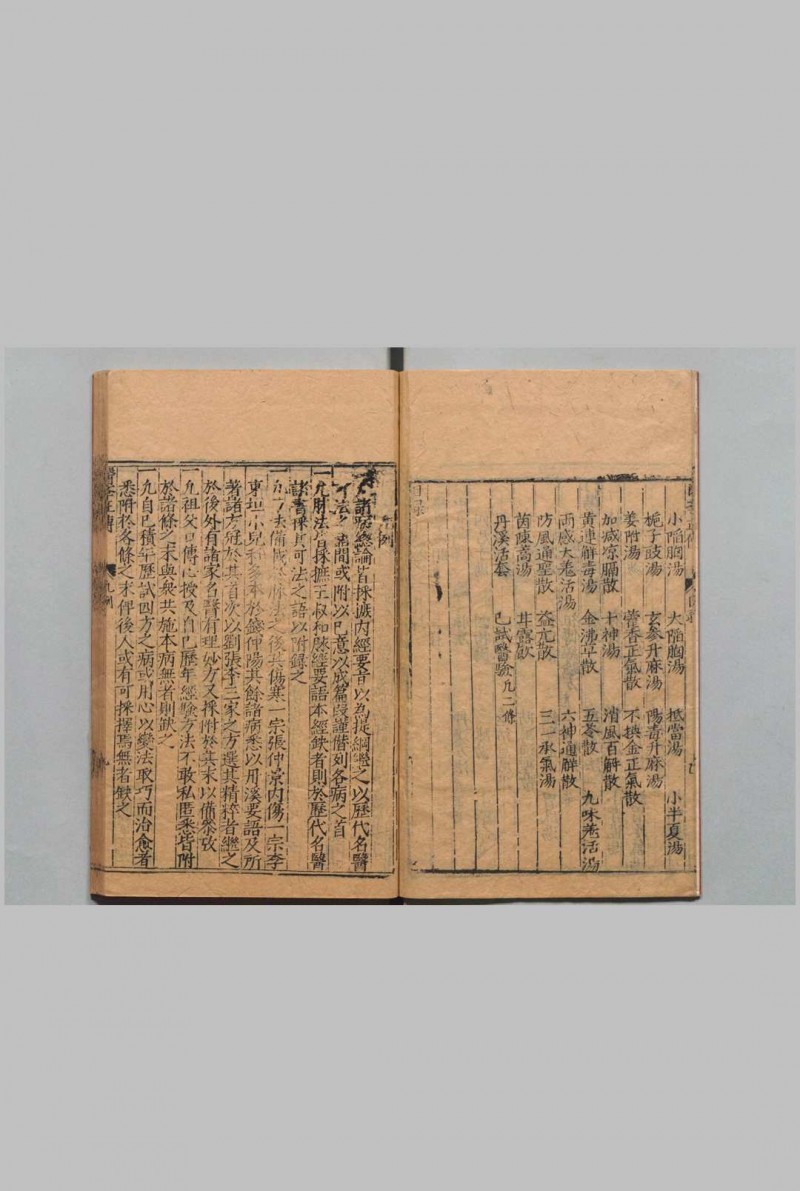 小陷胸湯 大陷胸湯 抵當湯 小半夏湯
梔子豉湯 玄參升麻湯 陽毒升麻湯
姜附湯 藿香正氣散 不換金正氣散
加减凉膈散 十神湯 消風百解散
黄連解毒湯 金沸草散 五苓散 九味羗活湯
兩感大羗活湯 六神通解散
防風通聖散 益元散 三一承氣湯
茵陳蒿湯 甘露飲
丹溪活套 已試醫驗九二條
目录
凡例
諸病總論皆採摭内經要旨以為提綱繼之以歷代名醫
可法之語間或附以己意以成篇段謹僭列各病之首
一凡脉法皆採摭王叔和脉經要語本經缺者則於歷代名醫
諸書採其可法之語以附錄之
傷寒一宗張仲景内傷一宗李
東垣小兒科多本於錢仲陽其餘諸病悉以丹溪要語及所
著諸方冠於其首次以劉張李三家之方選其精粹者繼之
於後外有諸家名醫有理妙方又採附於其末以備叅攷
一凡祖父口傳心授及自己歷年經驗方法不敢私匿悉皆附
於諸條之末與衆共施本病無者則缺之
一凡自己積年歷試四方之病或用心以變法取巧而治愈者
悉附於各條之末俾後人或有可採擇焉無者缺之
醫學正傳 凡例